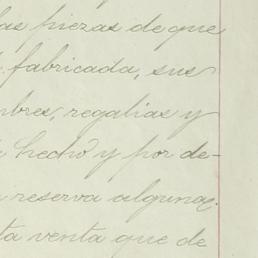 las piezas de que
fabricada, sus
mbres, regalias y
hecho y por de-
reserva alguna.
ta venta que de